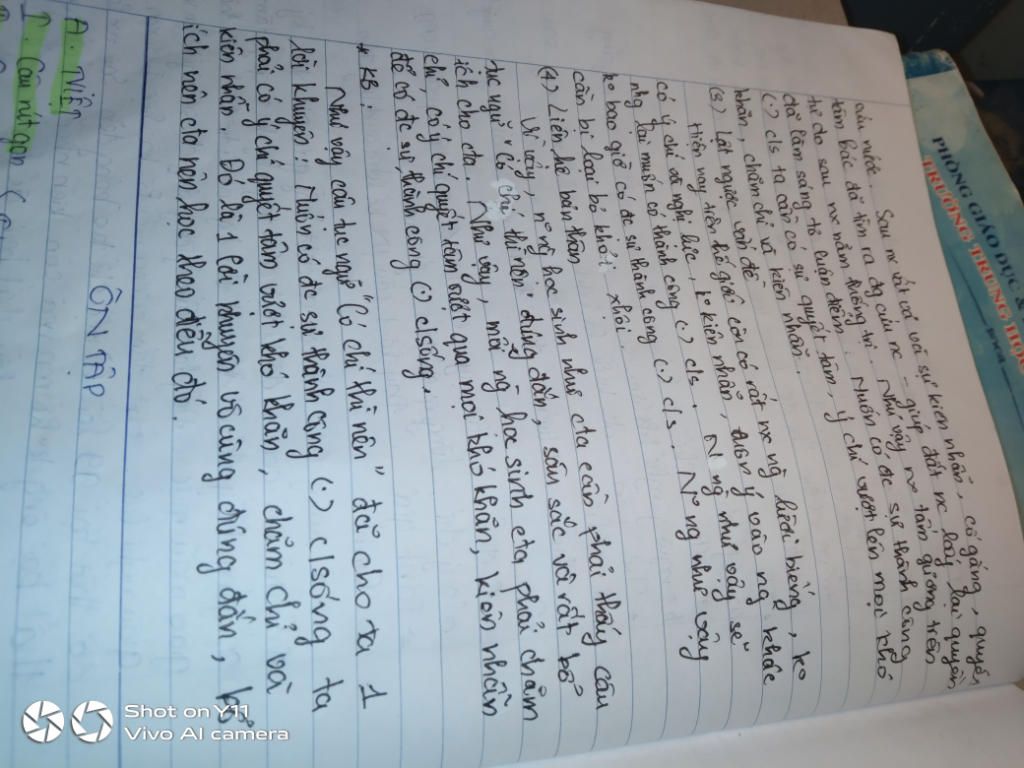 cứu nước. Sau nx vất vả và sự kiên nhẫn, cố gắng, quyết
tâm Bác đã tìm ra đg cứu nc - giúp đất nc lấy lại quyền
tự do sau nx năm thống trị. Như vậy nx tấm gương trên
đã làm sáng tỏ luận điểm. Muốn có đc sự thành công
(.) c/s ta cần có sự quyết tâm, ý chí vượt lên mọi khó
khăn, chăm chỉ và kiên nhẫn.
(3) Lật ngược vấn đề
Hiện nay trên thế giới còn có rất nx ng lười biếng, ko
có ý chí và nghị lực, ko kiên nhẫn, ý vào ng khác
nhg lại muốn có thành công (.) c/s. N~ ng như vậy sẽ
ko bao giờ có đc sự thành công (.) c/s. N~ ng như vậy
cần bị loại bỏ khỏi xhội.
(4) Liên hệ bản thân
Vì vậy, n~ ng học sinh như cta cần phải thấy câu
tục ngữ "có chí thì nên" đúng đắn, sâu sắc và rất bổ
ích cho cta. Như vậy, mỗi ng học sinh cta phải chăm
chỉ, có ý chí quyết tâm vượt qua mọi khó khăn, kiên nhẫn
để có đc sự thành công (.) c/sống.
* KB:
Như vậy câu tục ngữ "Có chí thì nên" đã cho ta 1
lời khuyên: Muốn có đc sự thành công (.) c/sống ta
phải có ý chí quyết tâm vượt khó khăn, chăm chỉ và
kiên nhẫn. Đó là 1 lời khuyên vô cùng đúng đắn, bổ
ích nên cta nên học theo điều đó.
ÔN TẬP
A. VIỆT
I. Câu rút gọn
PHÒNG GIÁO DỤC &
TRƯỜNG TRUNG HỌC
Shot on Y11
Vivo AI camera